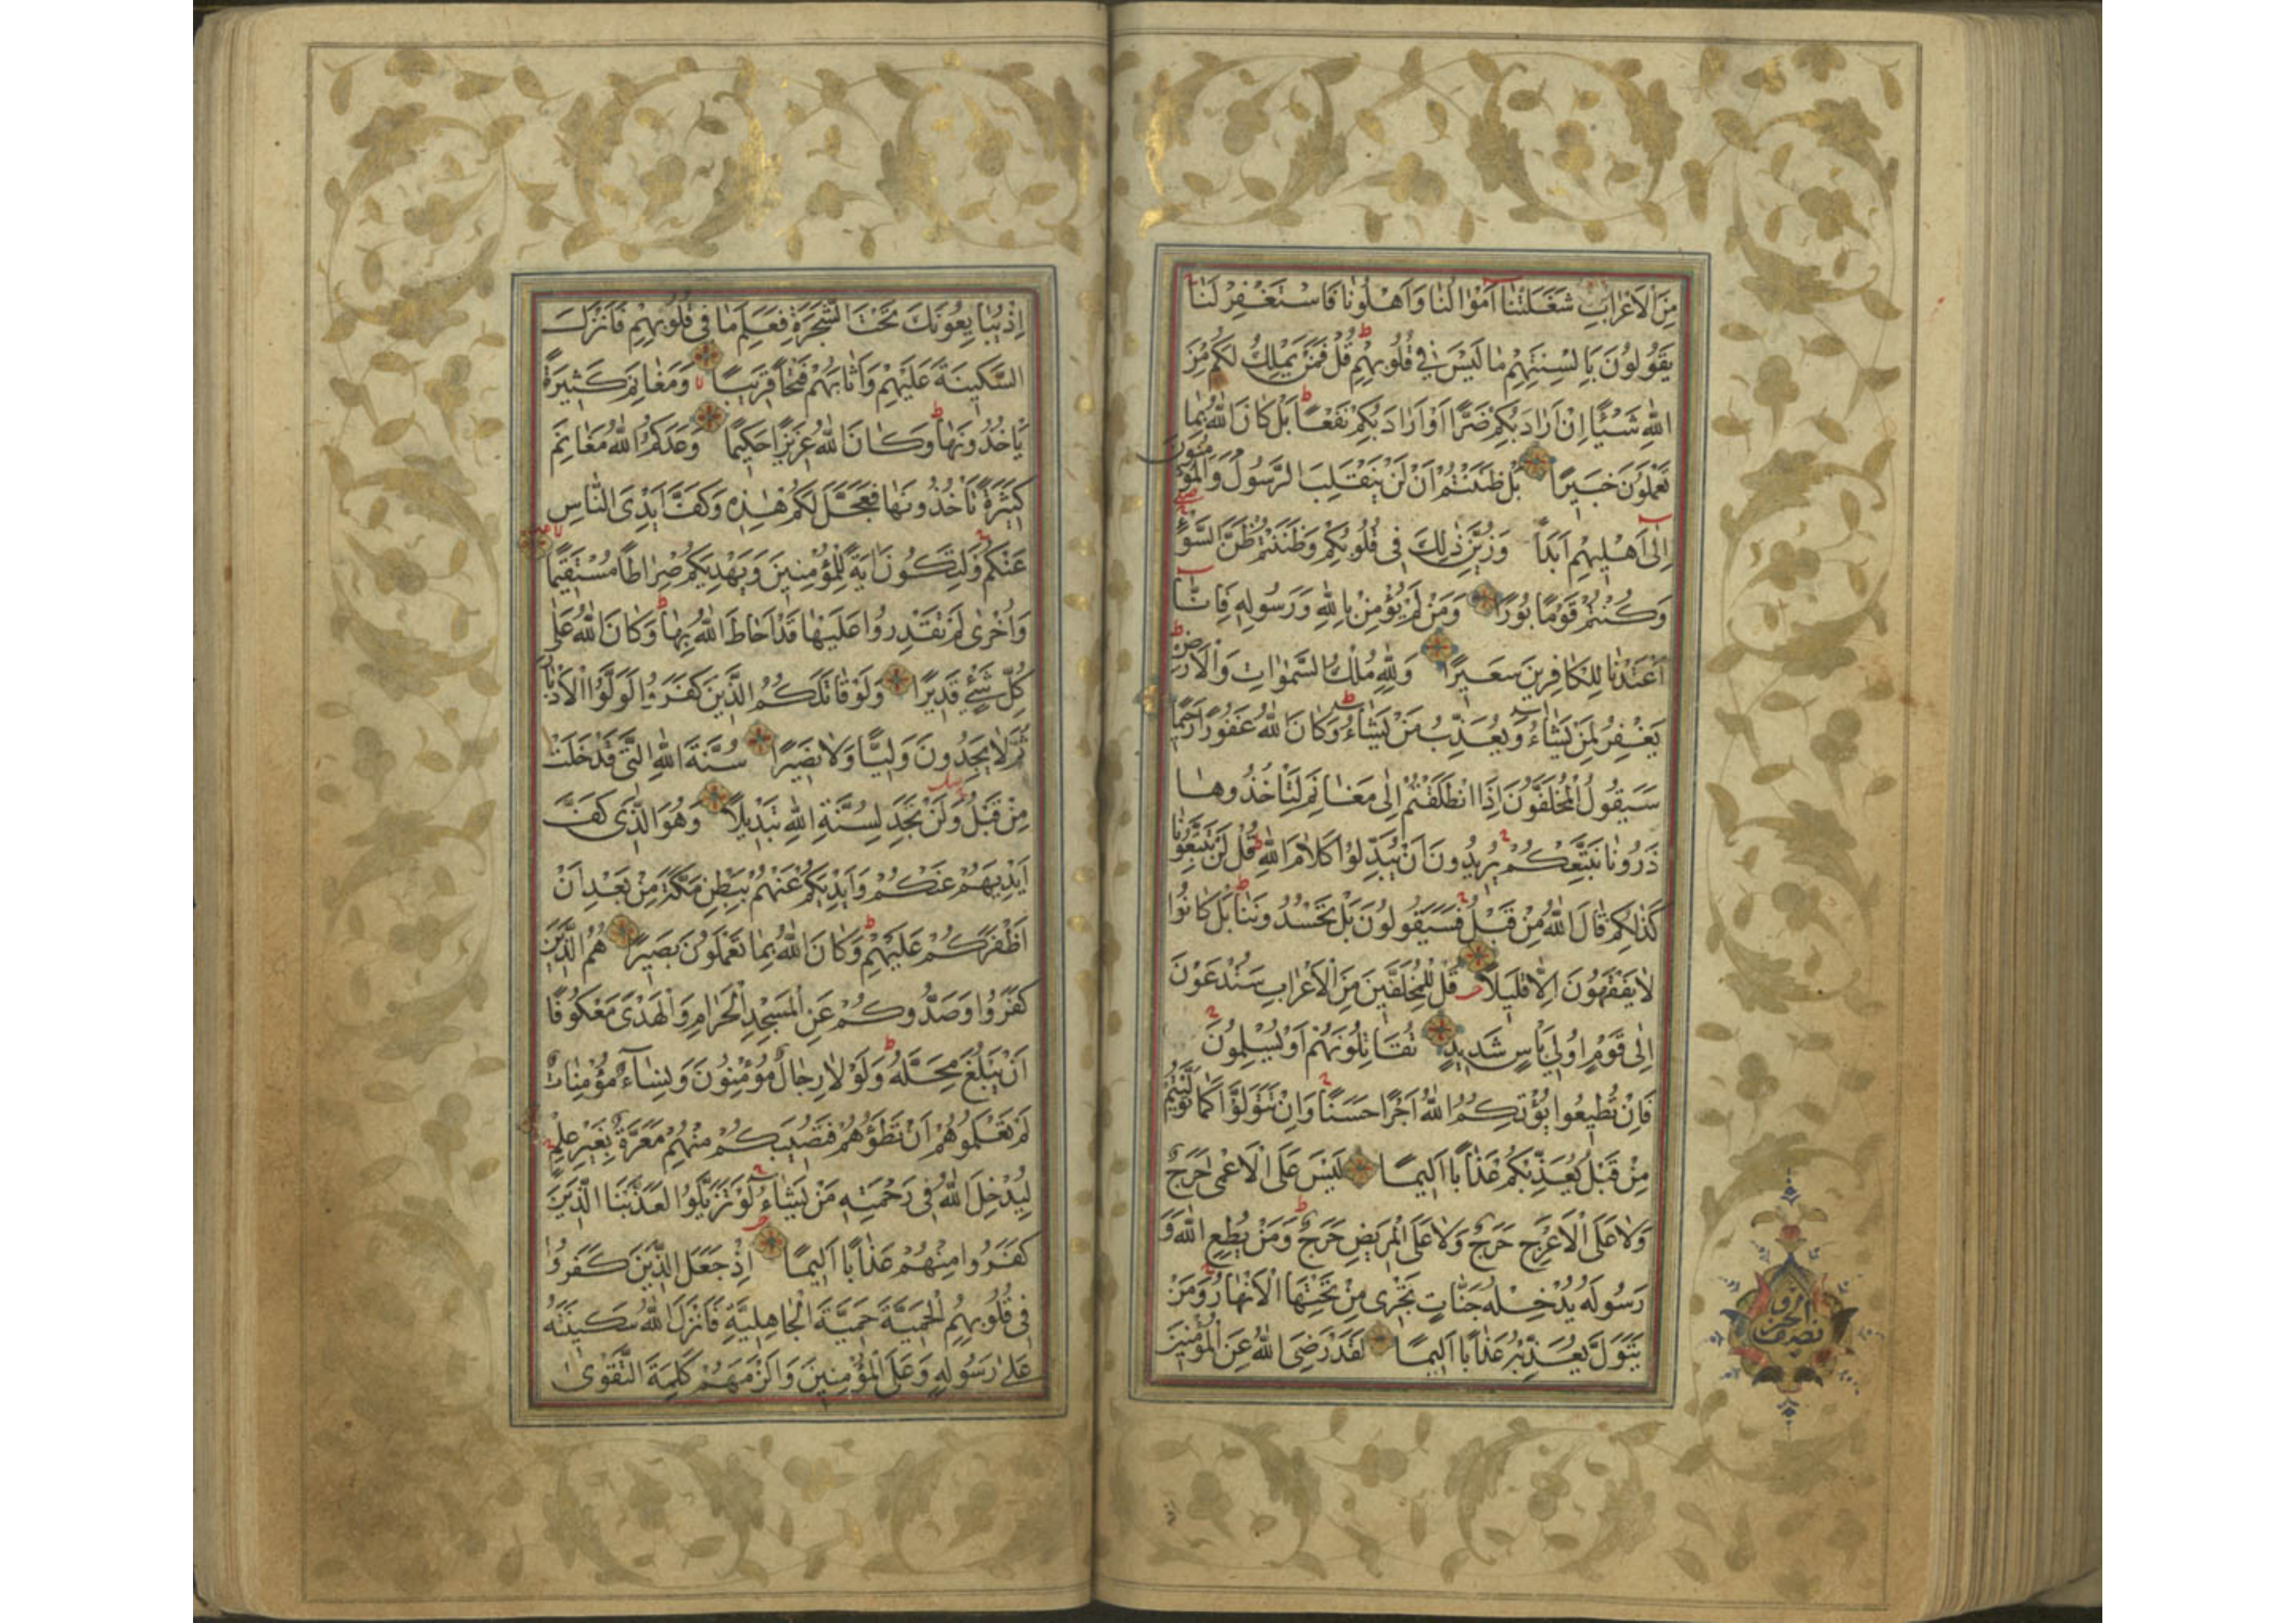 مِنَ الْاَعْرٰابِ شَغَلَتْنٰا اَمْوٰالُنٰا وَاَهْلُونٰا فَاسْتَغْفِرْ لَنٰا
يَقُولُونَ بِاَلْسِنَتِهِمْ مٰا لَيْسَ فٖي قُلُوبِهِمْ قُلْ فَمَنْ يَمْلِكُ لَكُمْ مِنَ
اللّٰهِ شَيْئًا اِنْ اَرٰادَ بِكُمْ ضَرًّا اَوْ اَرٰادَ بِكُمْ نَفْعًا بَلْ كٰانَ اللّٰهُ بِمٰا
تَعْمَلُونَ خَبٖيرًا بَلْ ظَنَنْتُمْ اَنْ لَنْ يَنْقَلِبَ الرَّسُولُ وَالْمُؤْمِنُونَ
اِلٰى اَهْلٖيهِمْ اَبَدًا وَزُيِّنَ ذٰلِكَ فٖي قُلُوبِكُمْ وَظَنَنْتُمْ ظَنَّ السَّوْءِ
وَكُنْتُمْ قَوْمًا بُورًا وَمَنْ لَمْ يُؤْمِنْ بِاللّٰهِ وَرَسُولِهٖ فَاِنّٰا
اَعْتَدْنٰا لِلْكٰافِرٖينَ سَعٖيرًا وَلِلّٰهِ مُلْكُ السَّمٰوٰاتِ وَالْاَرْضِ
يَغْفِرُ لِمَنْ يَشٰاءُ وَيُعَذِّبُ مَنْ يَشٰاءُ وَكٰانَ اللّٰهُ غَفُورًا رَحٖيمًا
سَيَقُولُ الْمُخَلَّفُونَ اِذَا انْطَلَقْتُمْ اِلٰى مَغٰانِمَ لِتَأْخُذُوهٰا
ذَرُونٰا نَتَّبِعْكُمْ يُرٖيدُونَ اَنْ يُبَدِّلُوا كَلٰامَ اللّٰهِ قُلْ لَنْ تَتَّبِعُونٰا
كَذٰلِكُمْ قٰالَ اللّٰهُ مِنْ قَبْلُ فَسَيَقُولُونَ بَلْ تَحْسُدُونَنٰا بَلْ كٰانُوا
لٰا يَفْقَهُونَ اِلّٰا قَلٖيلًا قُلْ لِلْمُخَلَّفٖينَ مِنَ الْاَعْرٰابِ سَتُدْعَوْنَ
اِلٰى قَوْمٍ اُولٖي بَأْسٍ شَدٖيدٍ تُقٰاتِلُونَهُمْ اَوْ يُسْلِمُونَ
فَاِنْ تُطٖيعُوا يُؤْتِكُمُ اللّٰهُ اَجْرًا حَسَنًا وَاِنْ تَتَوَلَّوْا كَمٰا تَوَلَّيْتُمْ
مِنْ قَبْلُ يُعَذِّبْكُمْ عَذٰابًا اَلٖيمًا لَيْسَ عَلَى الْاَعْمٰى حَرَجٌ
وَلٰا عَلَى الْاَعْرَجِ حَرَجٌ وَلٰا عَلَى الْمَرٖيضِ حَرَجٌ وَمَنْ يُطِعِ اللّٰهَ وَ
رَسُولَهُ يُدْخِلْهُ جَنّٰاتٍ تَجْرٖي مِنْ تَحْتِهَا الْاَنْهٰارُ وَمَنْ
يَتَوَلَّ يُعَذِّبْهُ عَذٰابًا اَلٖيمًا لَقَدْ رَضِيَ اللّٰهُ عَنِ الْمُؤْمِنٖينَ
نصف الحزب
اِذْ يُبٰايِعُونَكَ تَحْتَ الشَّجَرَةِ فَعَلِمَ مٰا فٖي قُلُوبِهِمْ فَاَنْزَلَ
السَّكٖينَةَ عَلَيْهِمْ وَاَثٰابَهُمْ فَتْحًا قَرٖيبًا وَمَغٰانِمَ كَثٖيرَةً
يَأْخُذُونَهٰا وَكٰانَ اللّٰهُ عَزٖيزًا حَكٖيمًا وَعَدَكُمُ اللّٰهُ مَغٰانِمَ
كَثٖيرَةً تَأْخُذُونَهٰا فَعَجَّلَ لَكُمْ هٰذِهٖ وَكَفَّ اَيْدِيَ النّٰاسِ
عَنْكُمْ وَلِتَكُونَ اٰيَةً لِلْمُؤْمِنٖينَ وَيَهْدِيَكُمْ صِرٰاطًا مُسْتَقٖيمًا
وَاُخْرٰى لَمْ تَقْدِرُوا عَلَيْهٰا قَدْ اَحٰاطَ اللّٰهُ بِهٰا وَكٰانَ اللّٰهُ عَلٰى
كُلِّ شَيْءٍ قَدٖيرًا وَلَوْ قٰاتَلَكُمُ الَّذٖينَ كَفَرُوا لَوَلَّوُا الْاَدْبٰارَ
ثُمَّ لٰا يَجِدُونَ وَلِيًّا وَلٰا نَصٖيرًا سُنَّةَ اللّٰهِ الَّتٖي قَدْ خَلَتْ
مِنْ قَبْلُ وَلَنْ تَجِدَ لِسُنَّةِ اللّٰهِ تَبْدٖيلًا وَهُوَ الَّذٖي كَفَّ
اَيْدِيَهُمْ عَنْكُمْ وَاَيْدِيَكُمْ عَنْهُمْ بِبَطْنِ مَكَّةَ مِنْ بَعْدِ اَنْ
اَظْفَرَكُمْ عَلَيْهِمْ وَكٰانَ اللّٰهُ بِمٰا تَعْمَلُونَ بَصٖيرًا هُمُ الَّذٖينَ
كَفَرُوا وَصَدُّوكُمْ عَنِ الْمَسْجِدِ الْحَرٰامِ وَالْهَدْيَ مَعْكُوفًا
اَنْ يَبْلُغَ مَحِلَّهُ وَلَوْلٰا رِجٰالٌ مُؤْمِنُونَ وَنِسٰاءٌ مُؤْمِنٰاتٌ
لَمْ تَعْلَمُوهُمْ اَنْ تَطَؤُهُمْ فَتُصٖيبَكُمْ مِنْهُمْ مَعَرَّةٌ بِغَيْرِ عِلْمٍ
لِيُدْخِلَ اللّٰهُ فٖي رَحْمَتِهٖ مَنْ يَشٰاءُ لَوْ تَزَيَّلُوا لَعَذَّبْنَا الَّذٖينَ
كَفَرُوا مِنْهُمْ عَذٰابًا اَلٖيمًا اِذْ جَعَلَ الَّذٖينَ كَفَرُوا
فٖي قُلُوبِهِمُ الْحَمِيَّةَ حَمِيَّةَ الْجٰاهِلِيَّةِ فَاَنْزَلَ اللّٰهُ سَكٖينَتَهُ
عَلٰى رَسُولِهٖ وَعَلَى الْمُؤْمِنٖينَ وَاَلْزَمَهُمْ كَلِمَةَ التَّقْوٰى